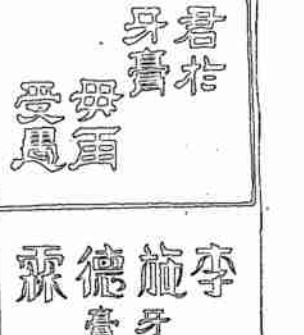 君於
牙膏
毋再
受愚
李施德霖
牙膏